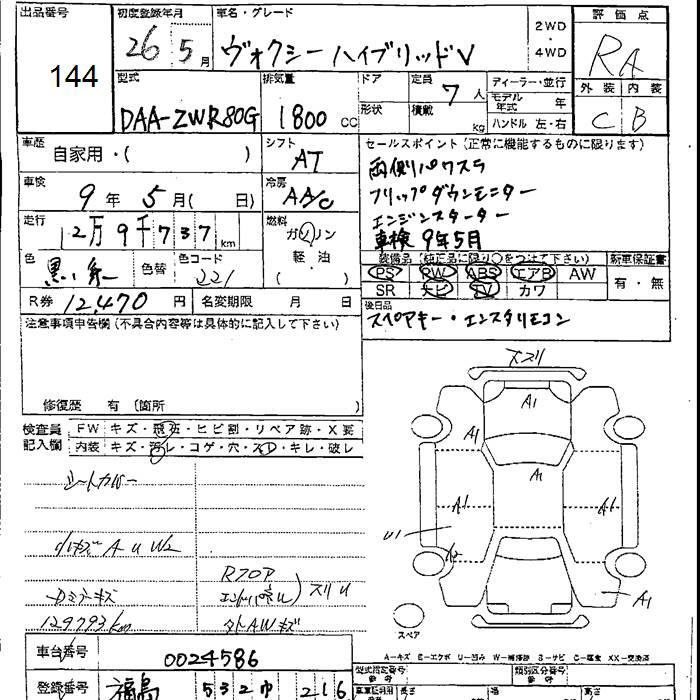 出品番号 144
初度登録年月 26 5月
車名・グレード ヴォクシーハイブリッドV
2WD・4WD
評価点 RA
外装 C 内装 B
型式 DAA-ZWR80G
排気量 1800 CC
ドア
形状
定員 7人
積載 kg
ディーラー・並行
モデル年式 年
ハンドル 左・右
車歴 自家用・( )
シフト AT
車検 9年 5月( 日)
冷房 AAC
走行 12万9千737 km
燃料 ガソリン
軽油
( )
色 黒
色替
色コード 221
R券 12,470 円
名変期限 月 日
セールスポイント(正常に機能するものに限ります)
両側パワスラ
フリップダウンモニター
エンジンスターター
車検9年5月
装備品(純正品に限り○をつけて下さい)
PS PW ABS エアB AW
SR ナビ TV カワ
新車保証書
有・無
後日品
スペアキー・エンスタリモコン
注意事項申告欄(不具合内容等は具体的に記入して下さい)
修復歴 有(箇所 )
検査員記入欄
FW キズ・飛石・ヒビ割・リペア跡・X要
内装 キズ・汚レ・コゲ・穴・スレ・キレ・破レ
シートカバー
A U W2
Dミラーキズ
129793km
Rフロア
スリU
マトAWキズ
スリ
A1
A1
A1
A1
A1
U1
A1
スペア
A-キズ E-エクボ U-凹み W-補修跡 S-サビ C-腐食 XX-交換済
車台番号 0024586
登録番号 福島 532 ゆ 216
型式指定番号
類別区分番号